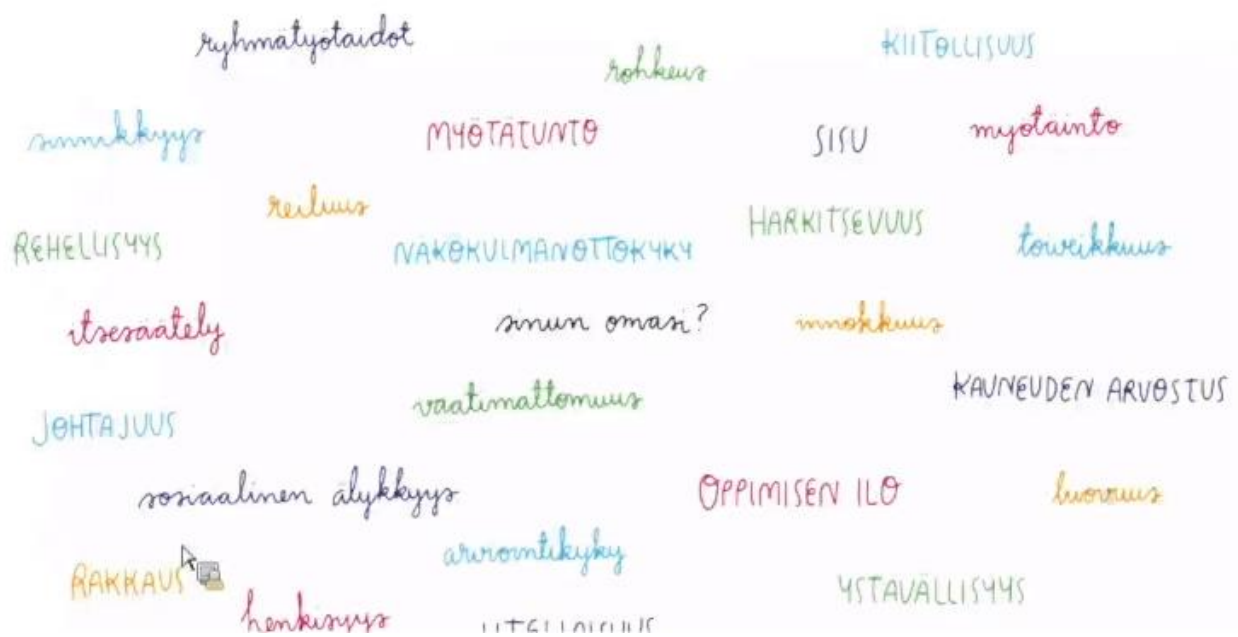 ryhmätyötaidot
rohkeus
KIITOLLISUUS
sinnikkyys
MYÖTÄTUNTO
SISU
myötäinto
reiluus
HARKITSEVUUS
REHELLISYYS
NÄKÖKULMANOTTOKYKY
toiveikkuus
itsesäätely
sinun omasi?
innokkuus
KAUNEUDEN ARVOSTUS
vaatimattomuus
JOHTAJUUS
sosiaalinen älykkyys
OPPIMISEN ILO
luovuus
arviointikyky
RAKKAUS
YSTÄVÄLLISYYS
henkisyys